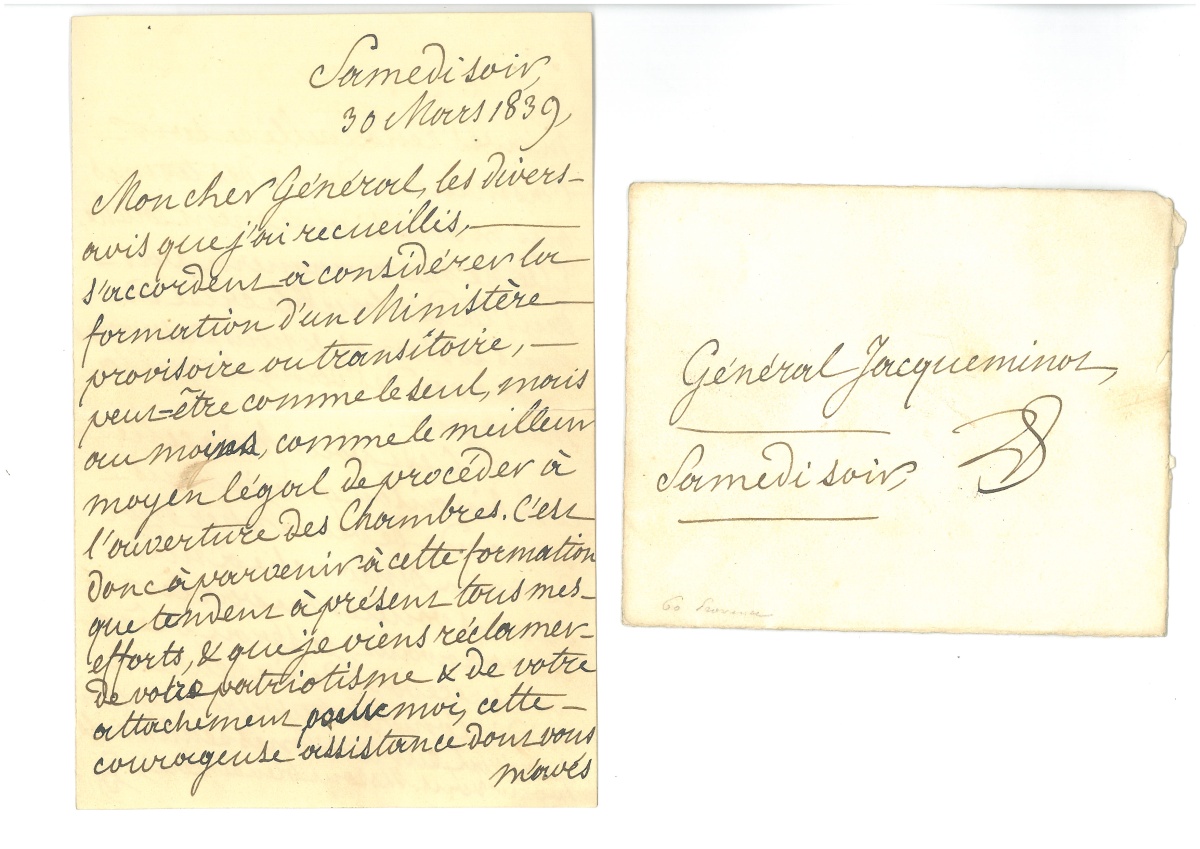 Samedi soir,
30 Mars 1839,
Mon cher Général, les divers
avis que j'ai recueillis,
s'accordent à considérer la
formation d'un Ministère
provisoire ou transitoire,
peut-être comme le seul, mais
au moins, comme le meilleur
moyen légal de procéder à
l'ouverture des Chambres. C'est
donc à parvenir à cette formation
que tendent à présent tous mes
efforts, & que je viens réclamer
de votre patriotisme & de votre
attachement pour moi, cette
courageuse assistance dont vous
m'avés
Général Jacqueminot,
Samedi soir,
60 Provence